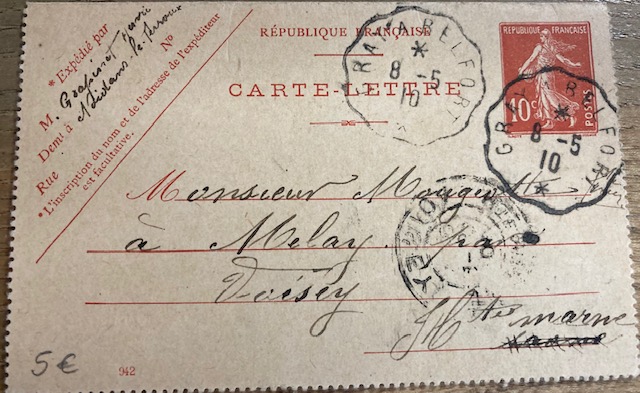 RÉPUBLIQUE FRANÇAISE
CARTE-LETTRE
* Expédié par
M.
Demt à
Rue
N°
*L'inscription du nom et de l'adresse de l'expéditeur
est facultative.
RÉPUBLIQUE FRANÇAISE
10c
POSTES
GRAY A BELFORT
*
8 -5
10
*
GRAY A BELFORT
*
8 -5
10
*
Monsieur Mougeot
à Melay par
Voisey
Hte marne
5€
942